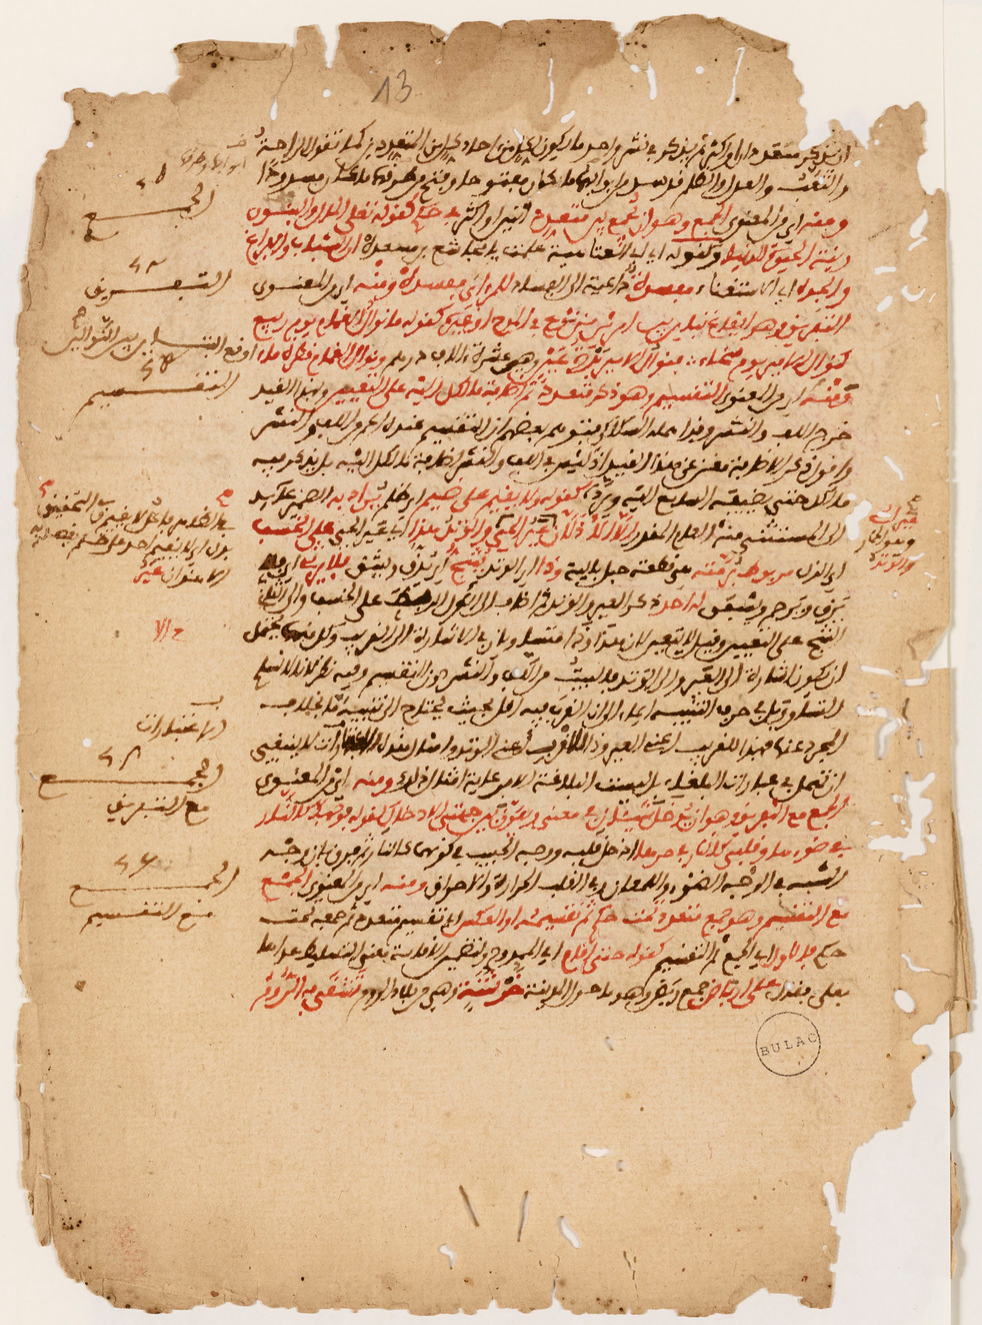 13
ان يذكر متعددان او اكثر ثم يذكر في نشر واحد ما يكون لكل من احاد كل من المتعددين كما تقول الراحة
والتعب والعدل والظلم قد سد من ابوابها ما كان مفتوحا وفتح من طرقها ما كان مسدودا
الجمع
ومنه اي ومن المعنوي الجمع وهو ان يجمع بين متعدد اثنين او اكثر في حكم كقوله تعلى المال والبنون
زينة الحيوة الدنيا وكقوله اي ابي العتاهية علمت يا مجاشع بن مسعدة ان الشباب والفراغ
التفريق
والجدة اي الاستغناء مفسدة داعية الى الفساد للمرء اي مفسدة ومنه اي ومن المعنوي
التفريق وهو ايقاع تباين بين امرين من نوع في المدح او غيره كقوله ما نوال الغمام يوم ربيع
كنوال الامير يوم سخاء فنوال الامير بدرة عين وهي عشرة الاف درهم ونوال الغمام قطرة ماء اوقع التباين بين النوالين
التقسيم
ومنه اي ومن المعنوي التقسيم وهو ذكر متعدد ثم اضافة ما لكل اليه على التعيين وبهذا القيد
خرج اللف والنشر وقد اهمله السكاكي فتوهم بعضهم ان التقسيم عنده اعم من اللف والنشر
واقول ان ذكر الاضافة مغن عن هذا القيد اذ ليس في اللف والنشر اضافة ما لكل اليه بل يذكر فيه
ما لكل حتى يضيفه السامع اليه ويرده كقوله ولا يقيم على ضيم اي ظلم يراد به الضمير عائد
الى المستثنى منه العام المقدر الا الاذلان عير الحي والوتد هذا اي عير الحي على الخسف
اي الذل مربوط برمته هي قطعة حبل بالية وذا اي الوتد يشج اي يدق ويشق فلا يرثي اي لا
يرق ويرحم ويشفق له احد ذكر العير والوتد ثم اضاف الى الاول الربط على الخسف والى الثاني
الشج على التعيين وقيل لا تعيين لان هذا وذا متساويان في الاشارة الى القريب وكل منهما يحتمل
ان يكون اشارة الى العير والى الوتد فالبيت من اللف والنشر دون التقسيم وفيه نظر لانا لا نسلم
التساوي بل في حرف التنبيه ايماء الى ان القرب فيه اقل بحيث يحتاج الى تنبيه ما بخلاف
الاعتبارات
المجرد عنها فهذا للقريب اعني العير وذا للاقرب اعني الوتد وامثال هذه الاعتبارات لا ينبغي
الجمع
مع التفريق
ان تهمل في عبارات البلغاء بل ليست البلاغة الا رعاية امثال ذلك ومنه اي ومن المعنوي
الجمع مع التفريق وهو ان يدخل شيئان في معنى ويفرق بين جهتي الادخال كقوله فوجهك كالنار
في ضوئها وقلبي كالنار في حرها ادخل قلبه ووجه الحبيب في كونهما كالنار ثم فرق بان وجه
الجمع
مع التقسيم
الشبه في الوجه الضوء واللمعان وفي القلب الحرارة والاحتراق ومنه اي ومن المعنوي الجمع
مع التقسيم وهو جمع متعدد تحت حكم ثم تقسيمه او العكس اي تقسيم متعدد ثم جمعه تحت
حكم فالاول اي الجمع ثم التقسيم كقوله حتى اقام اي الممدوح ولتضمين الاقامة معنى التسليط عداها
بعلى فقال على ارباض جمع ربض وهو ما حول المدينة خرشنة وهي من بلاد الروم تشقى به الروم
BULAC